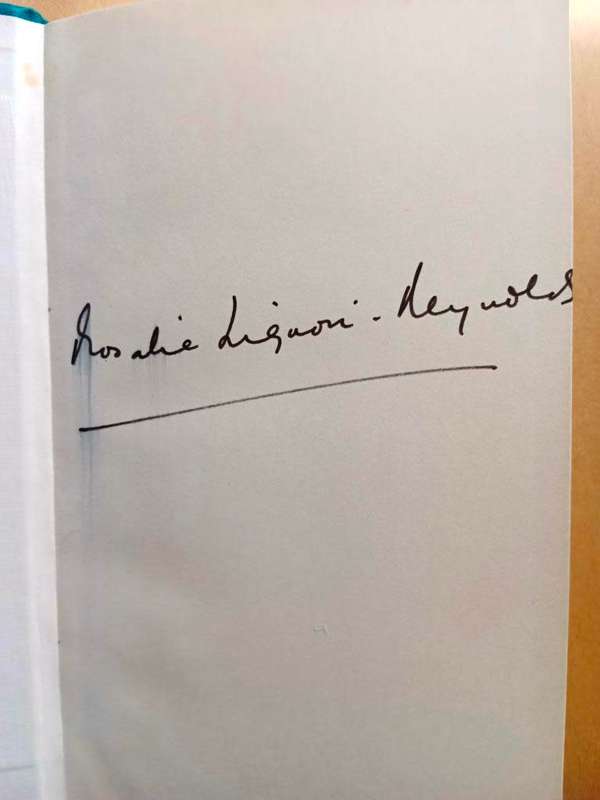 Rosalie Liguori-Reynolds